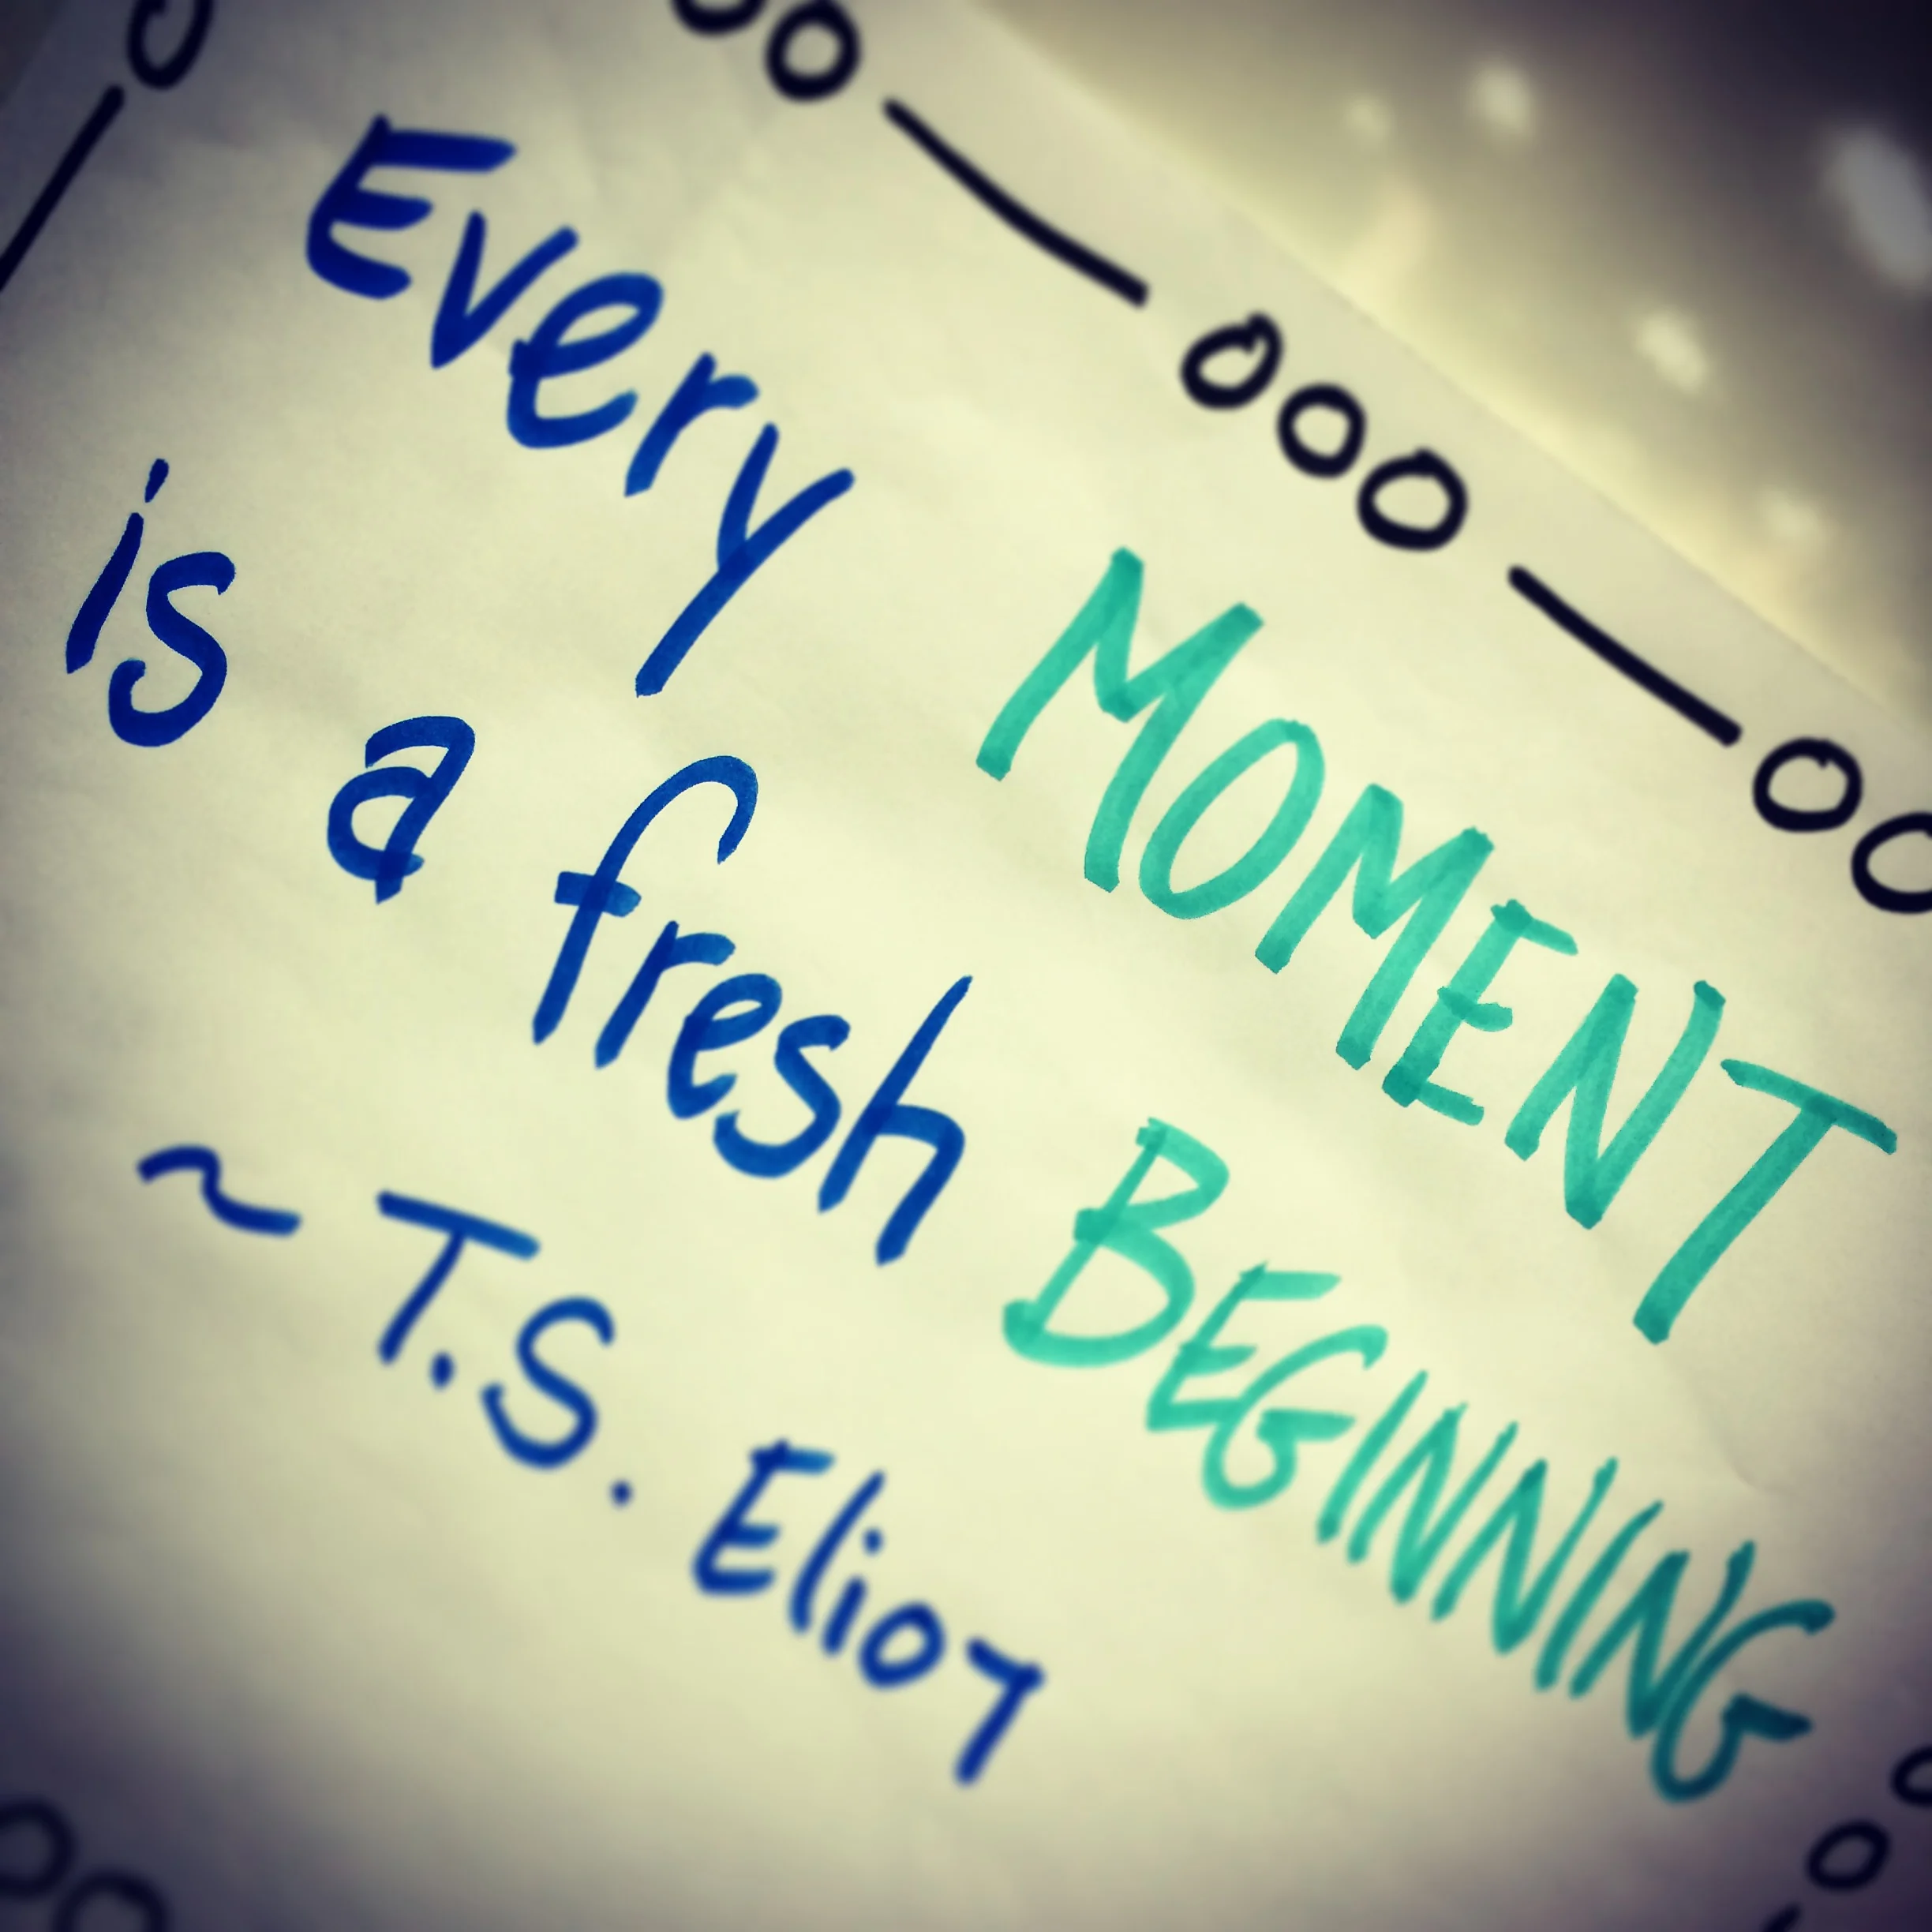 Every MOMENT
is a fresh BEGINNING
~ T.S. Eliot